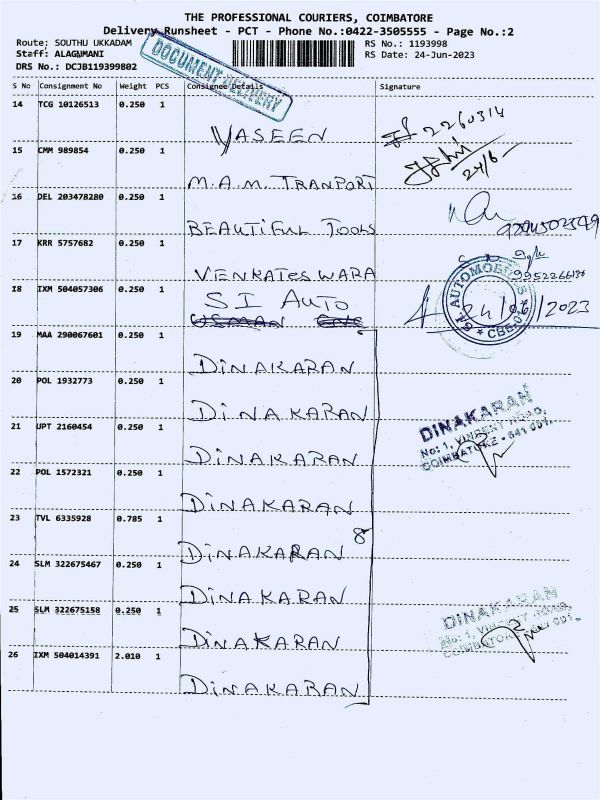 THE PROFESSIONAL COURIERS, COIMBATORE
Delivery Runsheet - PCT - Phone No.:0422-3505555 - Page No.:2
Route: SOUTHU UKKADAM
RS No.: 1193998
Staff: ALAGUMANI
RS Date: 24-Jun-2023
DRS No.: DCJB119399802
DOCUMENT DELIVERY
S No Consignment No Weight PCS Consignee Details Signature
14 TCG 10126513 0.250 1
YASEEN
2260314
15 CMM 989854 0.250 1
24/6
M.A.M. TRANPORT
16 DEL 203478280 0.250 1
BEAUTIFUL TOOLS
17 KRR 5757682 0.250 1
VENKATESWARA
9952266136
18 IXM 504057306 0.250 1
SI AUTO
24/06/2023
19 MAA 290067601 0.250 1
DINAKARAN
20 POL 1932773 0.250 1
DINAKARAN
DINAKARAN
21 UPT 2160454 0.250 1
No: 1, VINCENT ROAD,
COIMBATORE - 641 001.
DINAKARAN
22 POL 1572321 0.250 1
DINAKARAN
23 TVL 6335928 0.785 1
8
DINAKARAN
24 SLM 322675467 0.250 1
DINAKARAN
25 SLM 322675158 0.250 1
DINAKARAN
DINAKARAN
26 IXM 504014391 2.010 1
DINAKARAN